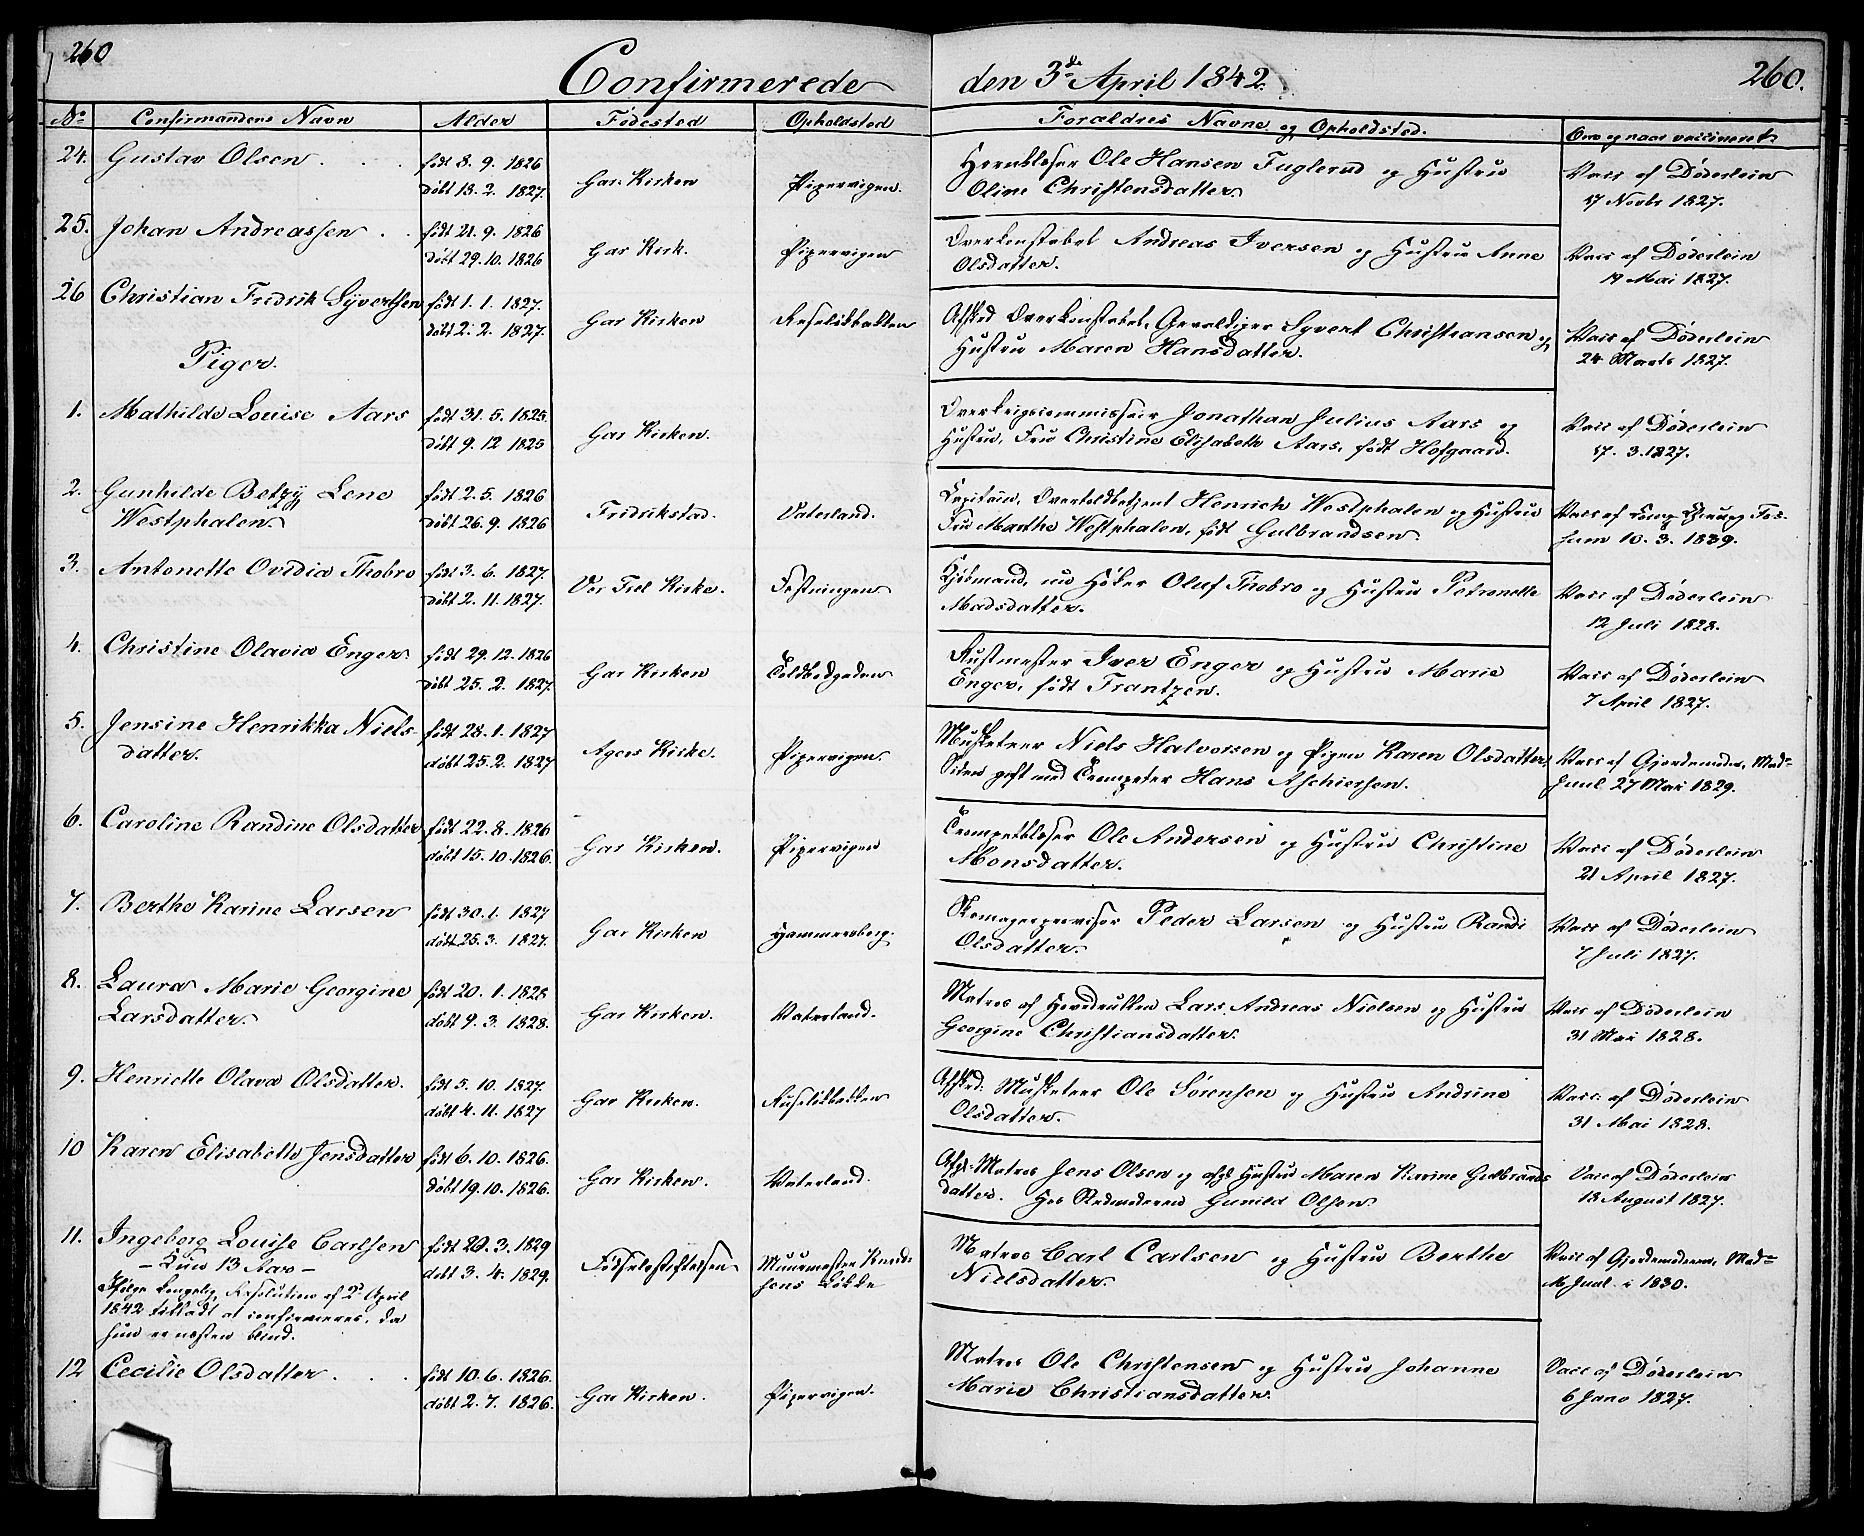 260
Confirmerede den 3de April 1842.
260.
No Confirmandens Navn Alder Fødested Opholdsted Forældres Navne og Opholdsted. Om og naar vaccineret
24. Gustav Olsen . . . født 8. 9. 1826 Hornblæser Ole Hansen Fuglerud og Hustru Vacc af Døderlein
døbt 18. 2. 1827. Gar. Kirken Pipervigen. Oline Christensdatter. 17 Novbr 1827.
25. Johan Andreassen . . født 21. 9. 1826 Overkonstabel Andreas Iversen og Hustru Anne Vacc af Døderlein
døbt 29. 10. 1826 Gar Kirk. Pipervigen Olsdatter. 19 Mai 1827.
26 Christian Fredrik Syvertsen født 1. 1. 1827. Afsked Overkonstabel, Gevaldiger Syvert Christiansen og Vacc af Døderlein
døbt 2. 2. 1827. Gar Kirken Ruseløkbakken Hustru Maren Hansdatter. 24 Marts 1827.
Piger.
1. Mathilde Louise Aars født 31. 5. 1825. Overkrigscommissair Jonathan Julius Aars og Vacc af Døderlein
døbt 9. 12 1825 Gar Kirken. Hustru, Fru Christine Elisabeth Aars, født Hofgaard. 17. 3. 1827.
2. Gunhilde Betzy Lene født 2. 5. 1826 Capitain, Overtoldbetjent Henrich Westphalen og Hustru Vacc af Comp Chirurg Fos-
Westphalen døbt 26. 9. 1826 Fridrikstad. Vaterland. Fru Marthe Westphalen, født Gulbrandsen. sum 10. 3. 1839.
3. Antonette Ovidia Thobro født 3. 6. 1827. Kjøbmand, nu Høker Oluf Thobro og Hustru Petronelle Vacc af Døderlein
døbt 2. 11. 1827. Vor Frel Kirke. Festningen Madsdatter. 12 Juli 1828.
4. Christine Olavia Enger født 29. 12. 1826 Rustmester Iver Enger og Hustru Marie Vacc af Døderlein
døbt 25. 2. 1827. Gar Kirken Toldbodgaden Enger, født Frantzen. 7 April 1827.
5. Jensine Henrikka Niels født 28. 1. 1827 Musketeer Niels Halvorsen og Pigen Karen Olsdatter, Vacc af Gjordemoder, Mad-
datter. døbt 25. 2. 1827 Agers Kirke. Pipervigen. Siden gift med Trompeter Hans Aschiersen. Juul 27 Mai 1829.
6. Caroline Randine Olsdatter født 22. 8. 1826 Trompetblæser Ole Andersen og Hustru Christine Vacc af Døderlein
døbt 15. 10. 1826. Gar Kirken. Pipervigen Monsdatter. 21 April 1827.
7. Berthe Karine Larsen født 30. 1. 1827 Skomager Peder Larsen og Hustru Randi Vacc af Døderlein
døbt 25. 3. 1827. Gar Kirken Hammersberg. Olsdatter. 7 Juli 1827.
8. Laura Marie Georgine født 20. 1. 1828 Matros af Lars Andreas Nielsen og Hustru Vacc af Døderlein
Larsdatter. døbt 9. 3. 1828. Gar Kirken. Vaterland. Georgine Christiansdatter. 31 Mai 1828.
9. Henriette Olava Olsdatter. født 5. 10. 1827. Afsked: Musketeer Ole Sørensen og Hustru Andrine Vacc: af Døderlein
døbt 4. 11. 1827 Gar Kirken. Ruseløkbakken Olsdatter. 31 Mai 1828.
10 Karen Elisabeth Jensdatter født 6. 10. 1826. Afsk. Matros Jens Olsen og Hustru Maren Karine Gulbrands Vacc af Døderlein
døbt 19. 10. 1826. Gar Kirken. Vaterland. datter. Hos Gunild Olsen. 18 August 1827.
11. Ingeborg Louise Carlsen født 20. 3. 1829 Matros Carl Carlsen og Hustru Berthe Vacc af Gjordemoderen, Mad-
– Kun 13 Aar – døbt 3. 4. 1829. Fødselsstiftelsen Muurmester Knud- Nielsdatter. Juul i 1830.
Ifølge kongelig Resolution af 2de April sens Løkke
1842 tilladt at confirmeres, da
hun er næsten blind.
12 Cecilie Olsdatter . . . født 10. 6. 1826. Matros Ole Christensen og Hustru Johanne Vacc af Døderlein
døbt 2. 7. 1826. Gar Kirken. Pipervigen. Marie Christiansdatter. 6 Jano 1827.